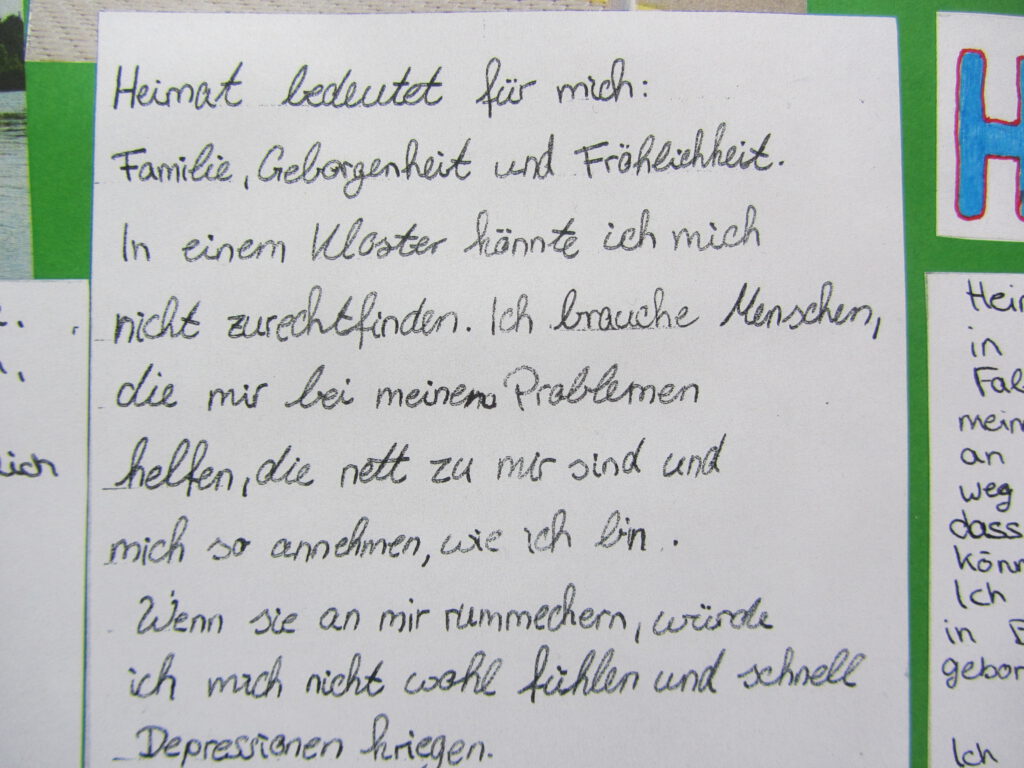 Heimat bedeutet für mich:
Familie, Geborgenheit und Fröhlichkeit.
In einem Kloster könnte ich mich
nicht zurechtfinden. Ich brauche Menschen,
die mir bei meinem Problemen
helfen, die nett zu mir sind und
mich so annehmen, wie ich bin.
Wenn sie an mir rummechern, würde
ich mich nicht wohl fühlen und schnell
Depressionen kriegen.
H
in
mein
an
weg
dass
Ich
in
Ich